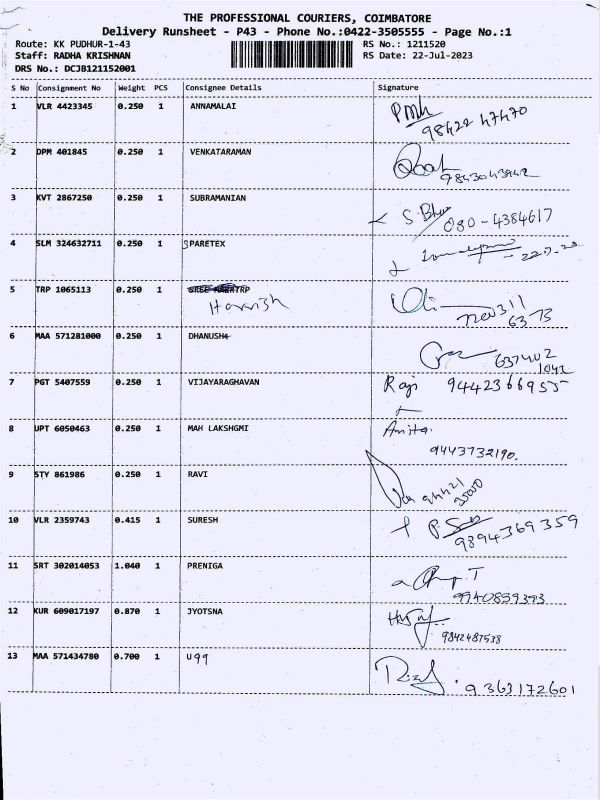 THE PROFESSIONAL COURIERS, COIMBATORE
Delivery Runsheet - P43 - Phone No.:0422-3505555 - Page No.:1
Route: KK PUDHUR-1-43 RS No.: 1211520
Staff: RADHA KRISHNAN RS Date: 22-Jul-2023
DRS No.: DCJB121152001
S No Consignment No Weight PCS Consignee Details Signature
1 VLR 4423345 0.250 1 ANNAMALAI
98422 47470
2 DPM 401845 0.250 1 VENKATARAMAN
3 KVT 2867250 0.250 1 SUBRAMANIAN
080-4384617
4 SLM 324632711 0.250 1 SPARETEX
5 TRP 1065113 0.250 1
Harrish
6373
6 MAA 571281000 0.250 1 DHANUSH
637402
1042
7 PGT 5407559 0.250 1 VIJAYARAGHAVAN Raji 9442366955
8 UPT 6050463 0.250 1 MAH LAKSHGMI Anita.
9443732190.
9 STY 861986 0.250 1 RAVI
10 VLR 2359743 0.415 1 SURESH
9894369359
11 SRT 302014053 1.040 1 PRENIGA
9940859393
12 KUR 609017197 0.870 1 JYOTSNA
9842487538
13 MAA 571434780 0.700 1 uqq
9363172601